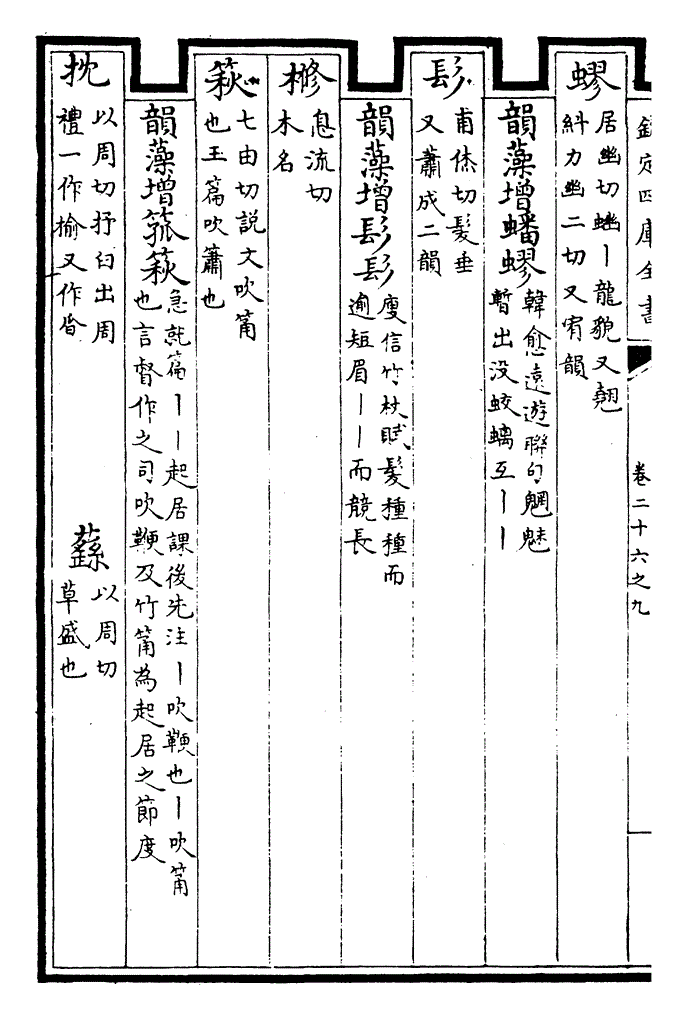 欽定四庫全書
卷二十六之九
蟉
居幽切蚴丨龍貌又翹
糾力幽二切又宥韻
韻藻增蟠蟉
韓愈遠遊聯句魍魅
暫出没蛟螭互丨丨
髟
甫烋切髮垂
又蕭咸二韻
韻藻增髟髟
庾信竹杖賦髮種種而
逾短眉丨丨而競長
樇
息流切
木名
篍
七由切説文吹筩
也玉篇吹簫也
韻藻增箛篍
急就篇丨丨起居課後先注丨吹鞭也丨吹筩
也言督作之司吹鞭及竹筩為起居之節度
抭
以周切抒臼出周
禮一作揄又作舀
蘨
以周切
草盛也